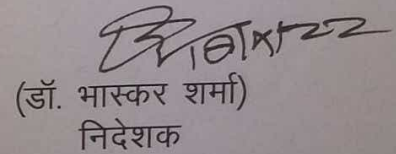 (डॉ. भास्कर शर्मा)
निदेशक